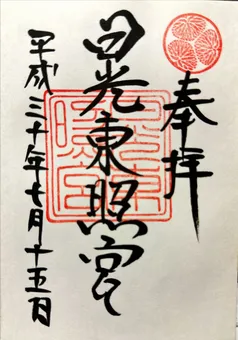 奉拝
日光東照宮
平成三十年七月十五日